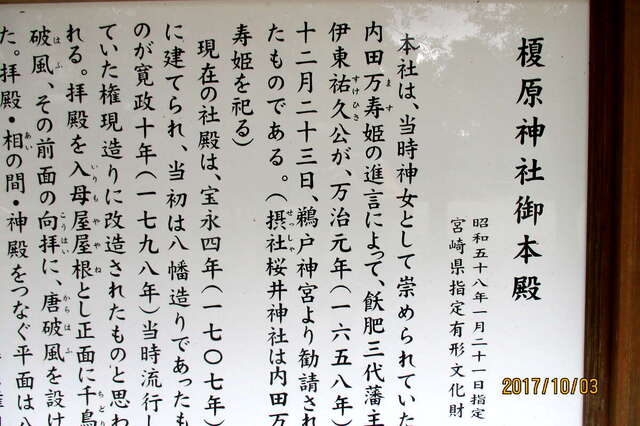 榎原神社御本殿
昭和五十八年一月二十一日指定
宮崎県指定有形文化財
本社は、当時神女として崇められていた
内田万寿姫の進言によって、飫肥三代藩主
ます
伊東祐久公が、万治元年(一六五八年)
すけひさ
十二月二十三日、鵜戸神宮より勧請され
たものである。(摂社桜井神社は内田万
せっしゃ
寿姫を祀る)
現在の社殿は、宝永四年(一七〇七年)
に建てられ、当初は八幡造りであったも
のが寛政十年(一七九八年)当時流行し
ていた権現造りに改造されたものと思わ
れる。拝殿を入母屋屋根とし正面に千鳥
いりもややね
ちどり
破風、その前面の向拝に、唐破風を設け
はふ
こうはい
からはふ
た。拝殿・相の間・神殿をつなぐ平面は八
あい
2017/10/03